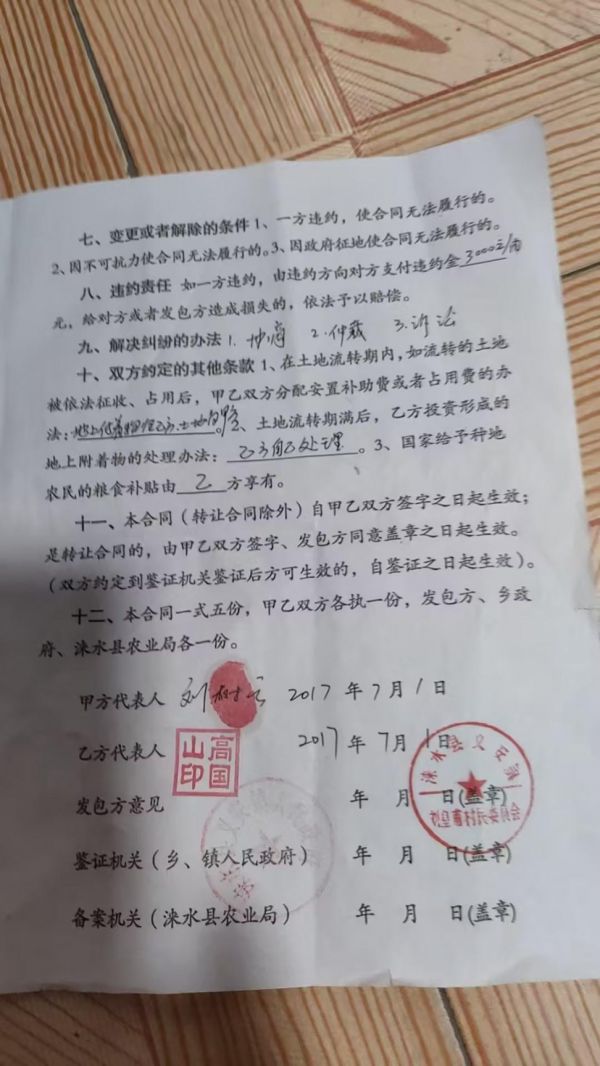 七、变更或者解除的条件 1、一方违约，使合同无法履行的。
2、因不可抗力使合同无法履行的。3、因政府征地使合同无法履行的。
八、违约责任 如一方违约，由违约方向对方支付违约金3000元/亩
元，给对方或者发包方造成损失的，依法予以赔偿。
九、解决纠纷的办法 1. 协商 2.仲裁 3.诉讼
十、双方约定的其他条款 1、在土地流转期内，如流转的土地
被依法征收、占用后，甲乙双方分配安置补助费或者占用费的办
法：地上附着物归乙方.土地归甲方。2、土地流转期满后，乙方投资形成的
地上附着物的处理办法：乙方自己处理。3、国家给予种地
农民的粮食补贴由 乙 方享有。
十一、本合同（转让合同除外）自甲乙双方签字之日起生效；
是转让合同的，由甲乙双方签字、发包方同意盖章之日起生效。
（双方约定到鉴证机关鉴证后方可生效的，自鉴证之日起生效）。
十二、本合同一式五份，甲乙双方各执一份，发包方、乡政
府、涞水县农业局各一份。
甲方代表人 刘树 2017年7月1日
乙方代表人 高国山印 2017年7月1日
发包方意见 年 月 日(盖章)
涞水县义安镇
村民委员会
鉴证机关（乡、镇人民政府） 年 月 日(盖章)
备案机关（涞水县农业局） 年 月 日(盖章)